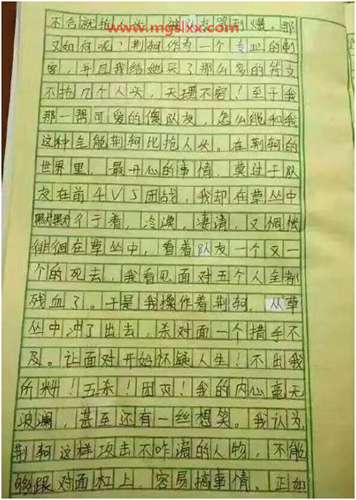 www.mgslxx.com
不合就抢人头，被队友骂到爆。那
又如何呢？荆轲作为一个专业的刺
客，并且我给她买了那么高的符文
不抢几个人头，天理不容！至于我
那一帮可爱的傻队友，怎么能和我
这种全能荆轲比抢人头。在荆轲的
世界里，最开心的事情，莫过于队
友在前4V5团战，我却在草丛中
默默 个 于看，冷漠，凄清，又惆怅
徘徊在草丛中，看着队友一个又一
个的死去，我看见面对五个人全都
残血了。于是我操作着荆轲，从草
丛中冲了出去，杀对面一个措手不
及。让面对开始怀疑人生！不出我
所料！五杀！团灭！我的内心毫无
波澜，甚至还有一丝想笑。我认为
荆轲这样攻击不咋 的人物，不能
够跟对面杠上，容易搞事情。正如